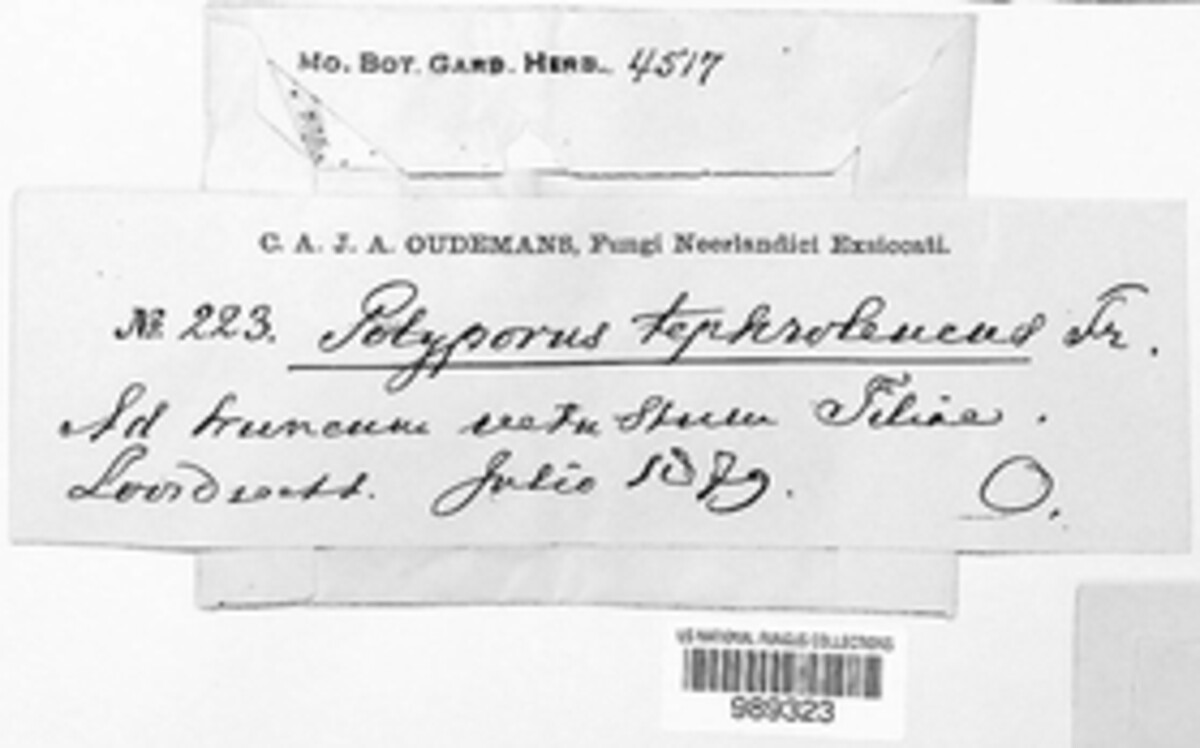 Mo. Bot. Gard. Herb. 4517
C. A. J. A. OUDEMANS, Fungi Neerlandici Exsiccati.
No. 223. Polyporus tephroleucus Fr.
Ad truncum vetustum Tiliae.
Loosdrecht. Julio 1879. O.
US NATIONAL FUNGUS COLLECTIONS
989323